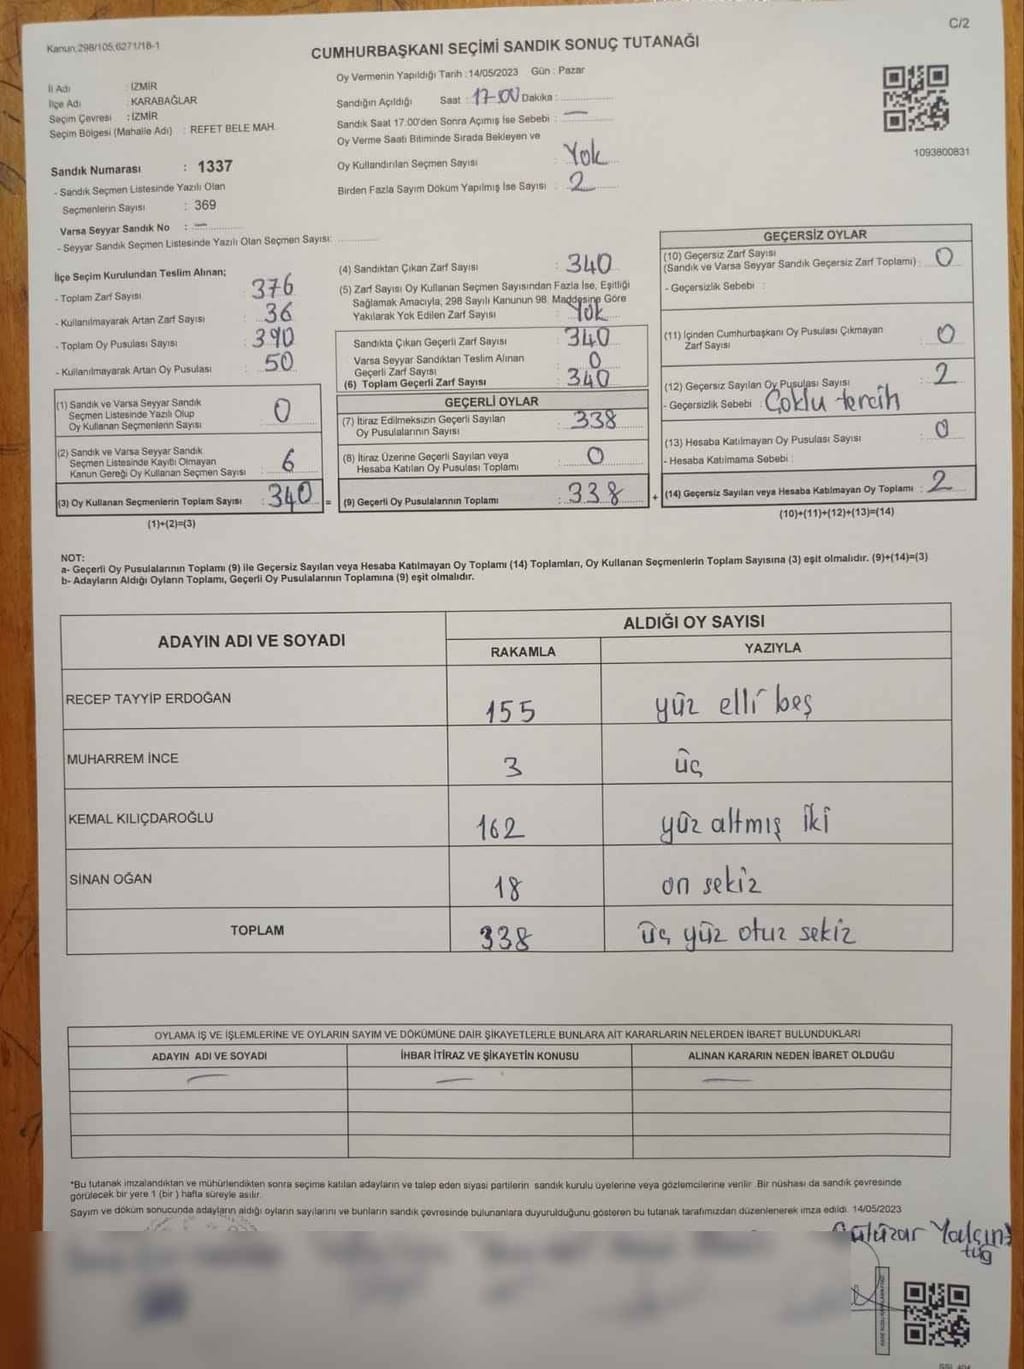 Kanun:298/105,6271/18-1
C/2
CUMHURBAŞKANI SEÇİMİ SANDIK SONUÇ TUTANAĞI
İl Adı : İZMİR
İlçe Adı : KARABAĞLAR
Seçim Çevresi : İZMİR
Seçim Bölgesi (Mahalle Adı) : REFET BELE MAH.
Sandık Numarası : 1337
- Sandık Seçmen Listesinde Yazılı Olan
Seçmenlerin Sayısı : 369
Varsa Seyyar Sandık No : —
- Seyyar Sandık Seçmen Listesinde Yazılı Olan Seçmen Sayısı:
Oy Vermenin Yapıldığı Tarih : 14/05/2023 Gün : Pazar
Sandığın Açıldığı Saat : 17:00 Dakika :
Sandık Saat 17.00'den Sonra Açımış İse Sebebi : —
Oy Verme Saati Bitiminde Sırada Bekleyen ve
Oy Kullandırılan Seçmen Sayısı : Yok
Birden Fazla Sayım Döküm Yapılmış İse Sayısı : 2
1093800831
İlçe Seçim Kurulundan Teslim Alınan;
- Toplam Zarf Sayısı : 376
- Kullanılmayarak Artan Zarf Sayısı : 36
- Toplam Oy Pusulası Sayısı : 390
- Kullanılmayarak Artan Oy Pusulası : 50
(1) Sandık ve Varsa Seyyar Sandık
Seçmen Listesinde Yazılı Olup
Oy Kullanan Seçmenlerin Sayısı : 0
(2) Sandık ve Varsa Seyyar Sandık
Seçmen Listesinde Kayıtlı Olmayan
Kanun Gereği Oy Kullanan Seçmen Sayısı : 6
(3) Oy Kullanan Seçmenlerin Toplam Sayısı : 340 =
(1)+(2)=(3)
(4) Sandıktan Çıkan Zarf Sayısı : 340
(5) Zarf Sayısı Oy Kullanan Seçmen Sayısından Fazla İse, Eşitliği
Sağlamak Amacıyla, 298 Sayılı Kanunun 98. Maddesine Göre
Yakılarak Yok Edilen Zarf Sayısı : Yok
Sandıkta Çıkan Geçerli Zarf Sayısı : 340
Varsa Seyyar Sandıktan Teslim Alınan
Geçerli Zarf Sayısı : 0
(6) Toplam Geçerli Zarf Sayısı : 340
GEÇERLİ OYLAR
(7) İtiraz Edilmeksizin Geçerli Sayılan
Oy Pusulalarının Sayısı : 338
(8) İtiraz Üzerine Geçerli Sayılan veya
Hesaba Katılan Oy Pusulası Toplamı : 0
(9) Geçerli Oy Pusulalarının Toplamı : 338 +
GEÇERSİZ OYLAR
(10) Geçersiz Zarf Sayısı
(Sandık ve Varsa Seyyar Sandık Geçersiz Zarf Toplamı) : 0
- Geçersizlik Sebebi :
(11) İçinden Cumhurbaşkanı Oy Pusulası Çıkmayan
Zarf Sayısı : 0
(12) Geçersiz Sayılan Oy Pusulası Sayısı : 2
- Geçersizlik Sebebi : Çoklu tercih
(13) Hesaba Katılmayan Oy Pusulası Sayısı : 0
- Hesaba Katılmama Sebebi :
(14) Geçersiz Sayılan veya Hesaba Katılmayan Oy Toplamı : 2
(10)+(11)+(12)+(13)=(14)
NOT:
a- Geçerli Oy Pusulalarının Toplamı (9) ile Geçersiz Sayılan veya Hesaba Katılmayan Oy Toplamı (14) Toplamları, Oy Kullanan Seçmenlerin Toplam Sayısına (3) eşit olmalıdır. (9)+(14)=(3)
b- Adayların Aldığı Oyların Toplamı, Geçerli Oy Pusulalarının Toplamına (9) eşit olmalıdır.
ADAYIN ADI VE SOYADI
ALDIĞI OY SAYISI
RAKAMLA YAZIYLA
RECEP TAYYİP ERDOĞAN 155 yüz elli beş
MUHARREM İNCE 3 üç
KEMAL KILIÇDAROĞLU 162 yüz altmış iki
SİNAN OĞAN 18 on sekiz
TOPLAM 338 üç yüz otuz sekiz
OYLAMA İŞ VE İŞLEMLERİNE VE OYLARIN SAYIM VE DÖKÜMÜNE DAİR ŞİKAYETLERLE BUNLARA AİT KARARLARIN NELERDEN İBARET BULUNDUKLARI
ADAYIN ADI VE SOYADI İHBAR İTİRAZ VE ŞİKAYETİN KONUSU ALINAN KARARIN NEDEN İBARET OLDUĞU
— — —
*Bu tutanak imzalandıktan ve mühürlendikten sonra seçime katılan adayların ve talep eden siyasi partilerin sandık kurulu üyelerine veya gözlemcilerine verilir. Bir nüshası da sandık çevresinde
görülecek bir yere 1 (bir ) hafta süreyle asılır.
Sayım ve döküm sonucunda adayların aldığı oyların sayılarını ve bunların sandık çevresinde bulunanlara duyurulduğunu gösteren bu tutanak tarafımızdan düzenlenerek imza edildi. 14/05/2023
Gülüzar Yalçın